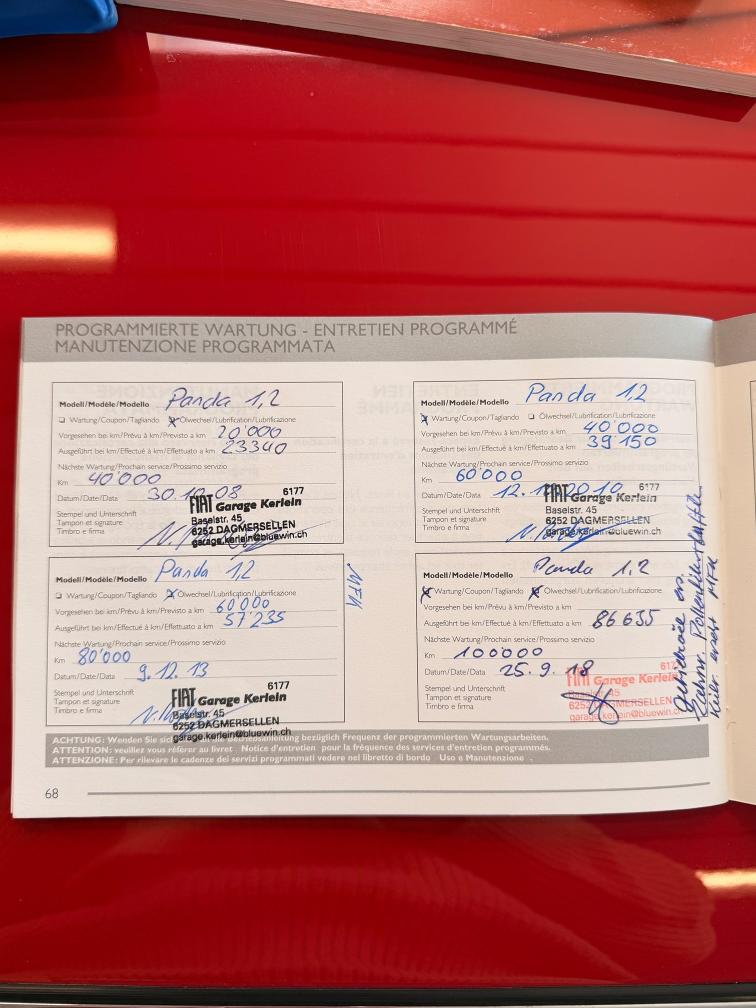 PROGRAMMIERTE WARTUNG - ENTRETIEN PROGRAMMÉ
MANUTENZIONE PROGRAMMATA
Modell/Modèle/Modello Panda 1,2
Wartung/Coupon/Tagliando Ölwechsel/Lubrification/Lubrificazione
Vorgesehen bei km/Prévu à km/Previsto a km 20'000
Ausgeführt bei km/Effectué à km/Effettuato a km 23340
Nächste Wartung/Prochain service/Prossimo servizio
Km 40'000
Datum/Date/Data 30.10.08
Stempel und Unterschrift
Tampon et signature
Timbro e firma
FIAT Garage Kerlein 6177
Baselstr. 45
6252 DAGMERSELLEN
garage.kerlein@bluewin.ch
Modell/Modèle/Modello Panda 1,2
Wartung/Coupon/Tagliando Ölwechsel/Lubrification/Lubrificazione
Vorgesehen bei km/Prévu à km/Previsto a km 40'000
Ausgeführt bei km/Effectué à km/Effettuato a km 39'150
Nächste Wartung/Prochain service/Prossimo servizio
Km 60'000
Datum/Date/Data 12. 2010
Stempel und Unterschrift
Tampon et signature
Timbro e firma
FIAT Garage Kerlein 6177
Baselstr. 45
6252 DAGMERSELLEN
garage.kerlein@bluewin.ch
Modell/Modèle/Modello Panda 1,2
Wartung/Coupon/Tagliando Ölwechsel/Lubrification/Lubrificazione
Vorgesehen bei km/Prévu à km/Previsto a km 60'000
Ausgeführt bei km/Effectué à km/Effettuato a km 57'235
Nächste Wartung/Prochain service/Prossimo servizio
Km 80'000
Datum/Date/Data 9.12.13
Stempel und Unterschrift
Tampon et signature
Timbro e firma
FIAT Garage Kerlein 6177
Baselstr. 45
6252 DAGMERSELLEN
garage.kerlein@bluewin.ch
MFK
Modell/Modèle/Modello Panda 1.2
Wartung/Coupon/Tagliando Ölwechsel/Lubrification/Lubrificazione
Vorgesehen bei km/Prévu à km/Previsto a km
Ausgeführt bei km/Effectué à km/Effettuato a km 86635
Nächste Wartung/Prochain service/Prossimo servizio
Km 100000
Datum/Date/Data 25.9.18
Stempel und Unterschrift
Tampon et signature
Timbro e firma
FIAT Garage Kerlein 617
45
6252 DAGMERSELLEN
garage.kerlein@bluewin.ch
MFK
ACHTUNG: Wenden Sie sich bezüglich Frequenz der programmierten Wartungsarbeiten.
ATTENTION: veuillez vous référer au livret Notice d'entretien pour la fréquence des services d'entretien programmés.
ATTENZIONE: Per rilevare le cadenze dei servizi programmati vedere nel libretto di bordo Uso e Manutenzione .
68